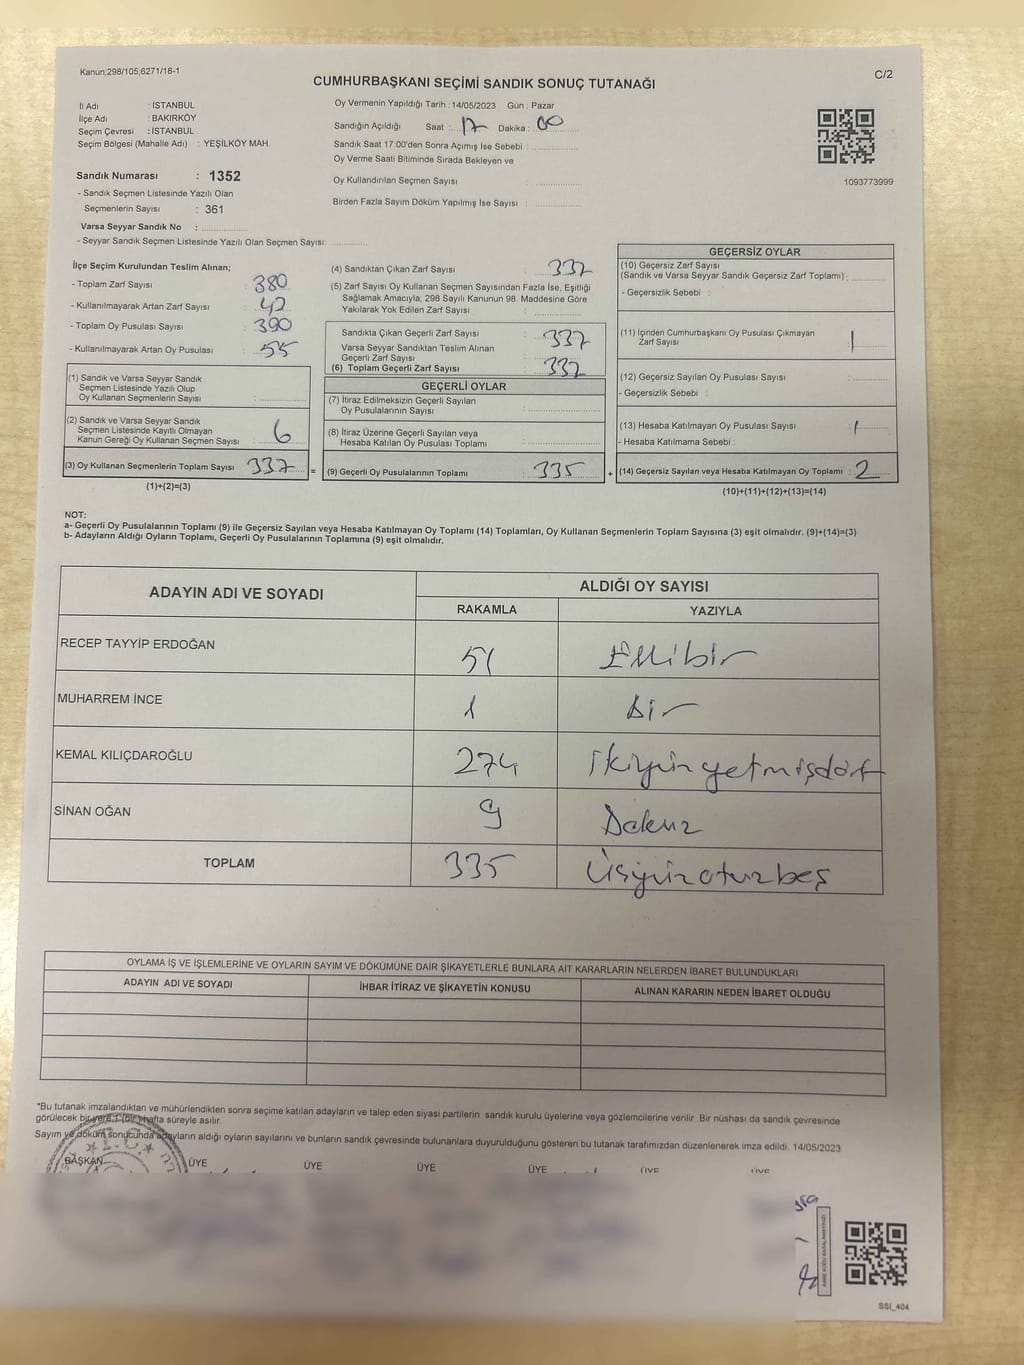 Kanun;298/105;6271/18-1
C/2
CUMHURBAŞKANI SEÇİMİ SANDIK SONUÇ TUTANAĞI
İl Adı : İSTANBUL
İlçe Adı : BAKIRKÖY
Seçim Çevresi : İSTANBUL
Seçim Bölgesi (Mahalle Adı) : YEŞİLKÖY MAH.
Sandık Numarası : 1352
- Sandık Seçmen Listesinde Yazılı Olan
Seçmenlerin Sayısı : 361
Varsa Seyyar Sandık No :
- Seyyar Sandık Seçmen Listesinde Yazılı Olan Seçmen Sayısı:
Oy Vermenin Yapıldığı Tarih : 14/05/2023 Gün : Pazar
Sandığın Açıldığı Saat : 17 Dakika : 00
Sandık Saat 17:00'den Sonra Açımış İse Sebebi :
Oy Verme Saati Bitiminde Sırada Bekleyen ve
Oy Kullandırılan Seçmen Sayısı :
Birden Fazla Sayım Döküm Yapılmış İse Sayısı :
1093773999
İlçe Seçim Kurulundan Teslim Alınan;
- Toplam Zarf Sayısı : 380
- Kullanılmayarak Artan Zarf Sayısı : 42
- Toplam Oy Pusulası Sayısı : 390
- Kullanılmayarak Artan Oy Pusulası : 55
(1) Sandık ve Varsa Seyyar Sandık
Seçmen Listesinde Yazılı Olup
Oy Kullanan Seçmenlerin Sayısı :
(2) Sandık ve Varsa Seyyar Sandık
Seçmen Listesinde Kayıtlı Olmayan
Kanun Gereği Oy Kullanan Seçmen Sayısı : 6
(3) Oy Kullanan Seçmenlerin Toplam Sayısı : 337
(1)+(2)=(3)
(4) Sandıktan Çıkan Zarf Sayısı : 337
(5) Zarf Sayısı Oy Kullanan Seçmen Sayısından Fazla İse, Eşitliği
Sağlamak Amacıyla, 298 Sayılı Kanunun 98. Maddesine Göre
Yakılarak Yok Edilen Zarf Sayısı :
Sandıkta Çıkan Geçerli Zarf Sayısı : 337
Varsa Seyyar Sandıktan Teslim Alınan
Geçerli Zarf Sayısı
(6) Toplam Geçerli Zarf Sayısı : 337
GEÇERLİ OYLAR
(7) İtiraz Edilmeksizin Geçerli Sayılan
Oy Pusulalarının Sayısı :
(8) İtiraz Üzerine Geçerli Sayılan veya
Hesaba Katılan Oy Pusulası Toplamı :
= (9) Geçerli Oy Pusulalarının Toplamı : 335 +
GEÇERSİZ OYLAR
(10) Geçersiz Zarf Sayısı
(Sandık ve Varsa Seyyar Sandık Geçersiz Zarf Toplamı) :
- Geçersizlik Sebebi :
(11) İçinden Cumhurbaşkanı Oy Pusulası Çıkmayan
Zarf Sayısı : 1
(12) Geçersiz Sayılan Oy Pusulası Sayısı :
- Geçersizlik Sebebi :
(13) Hesaba Katılmayan Oy Pusulası Sayısı : 1
- Hesaba Katılmama Sebebi :
(14) Geçersiz Sayılan veya Hesaba Katılmayan Oy Toplamı : 2
(10)+(11)+(12)+(13)=(14)
NOT:
a- Geçerli Oy Pusulalarının Toplamı (9) ile Geçersiz Sayılan veya Hesaba Katılmayan Oy Toplamı (14) Toplamları, Oy Kullanan Seçmenlerin Toplam Sayısına (3) eşit olmalıdır. (9)+(14)=(3)
b- Adayların Aldığı Oyların Toplamı, Geçerli Oy Pusulalarının Toplamına (9) eşit olmalıdır.
ADAYIN ADI VE SOYADI
ALDIĞI OY SAYISI
RAKAMLA YAZIYLA
RECEP TAYYİP ERDOĞAN 51 Ellibir
MUHARREM İNCE 1 bir
KEMAL KILIÇDAROĞLU 274 ikiyüzyetmişdört
SİNAN OĞAN 9 Dokuz
TOPLAM 335 üçyüzotuzbeş
OYLAMA İŞ VE İŞLEMLERİNE VE OYLARIN SAYIM VE DÖKÜMÜNE DAİR ŞİKAYETLERLE BUNLARA AİT KARARLARIN NELERDEN İBARET BULUNDUKLARI
ADAYIN ADI VE SOYADI
İHBAR İTİRAZ VE ŞİKAYETİN KONUSU
ALINAN KARARIN NEDEN İBARET OLDUĞU
*Bu tutanak imzalandıktan ve mühürlendikten sonra seçime katılan adayların ve talep eden siyasi partilerin sandık kurulu üyelerine veya gözlemcilerine verilir. Bir nüshası da sandık çevresinde
görülecek bir yere 1 (bir) hafta süreyle asılır.
Sayım ve döküm sonucunda adayların aldığı oyların sayılarını ve bunların sandık çevresinde bulunanlara duyurulduğunu gösteren bu tutanak tarafımızdan düzenlenerek imza edildi. 14/05/2023
BAŞKAN ÜYE ÜYE ÜYE ÜYE ÜYE ÜYE
T.C.
SSI_404